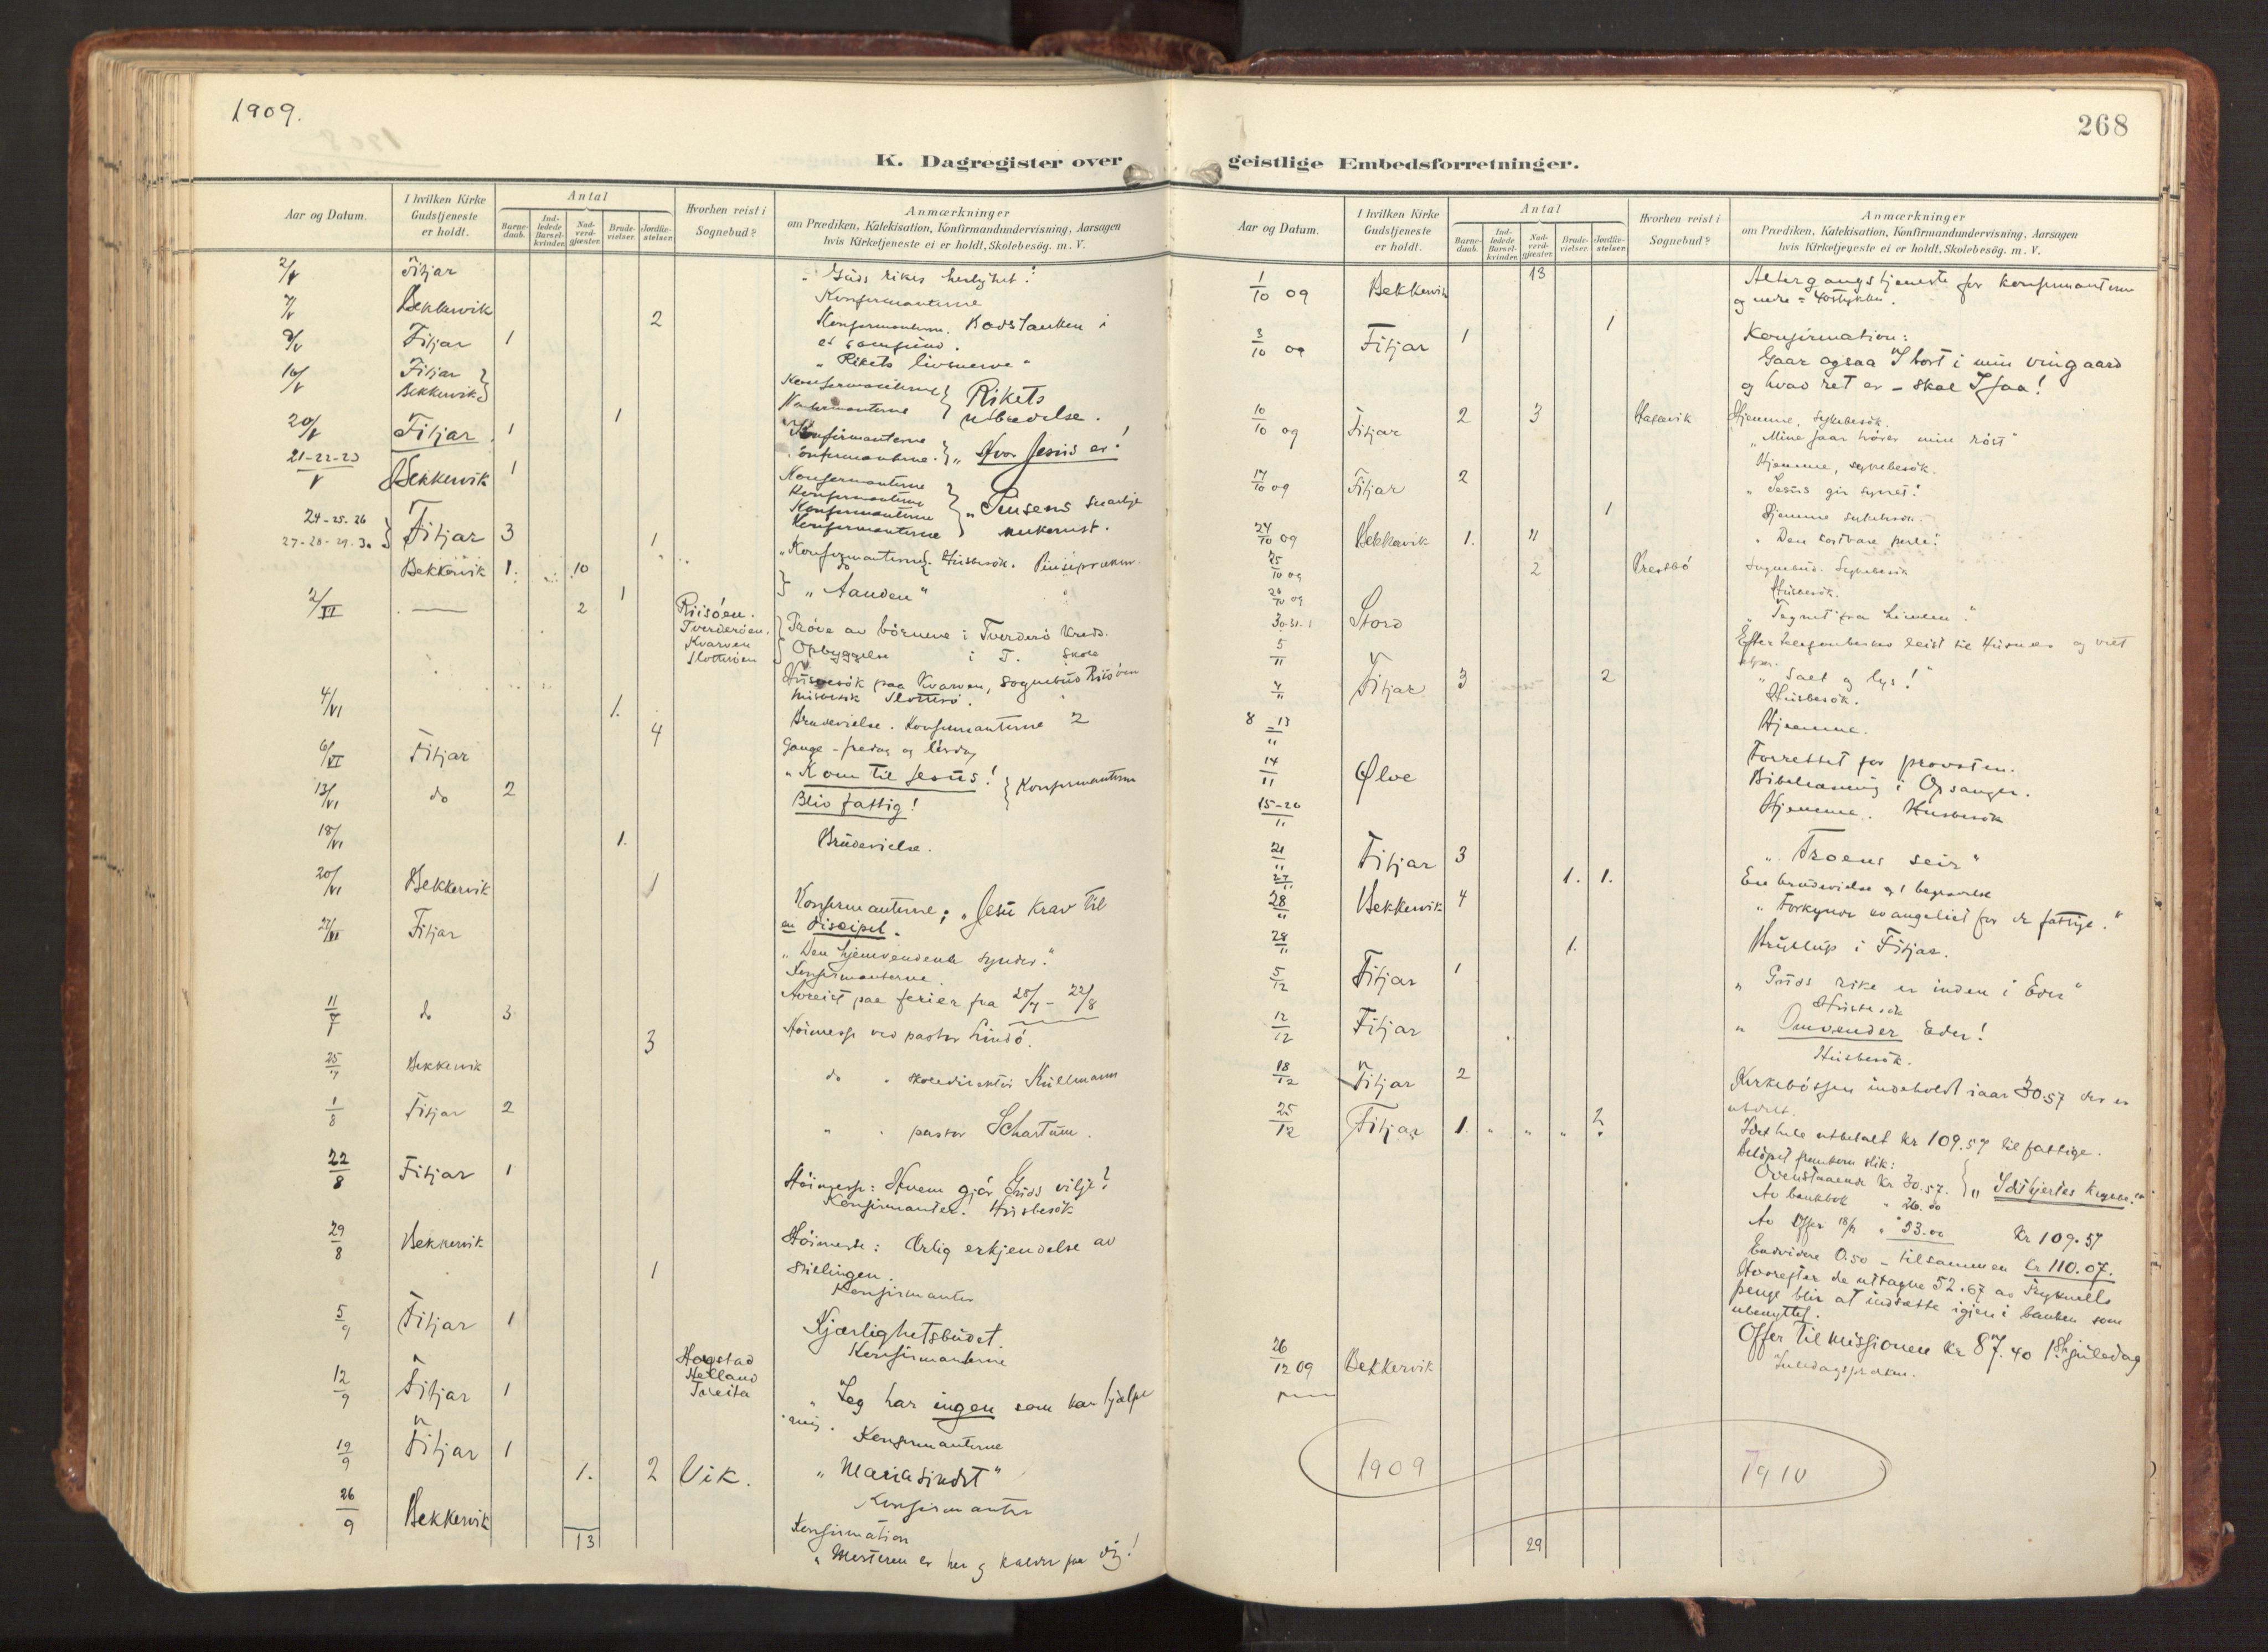 1909.
K. Dagregister over
Aar og Datum.
I hvilken Kirke Gudstjeneste er holdt.
Antal
Barne-daab.
Ind-ledede Barsel-kvinder.
Nad-verd-gjæster.
Brude-vielser.
Jordfæ-stelser.
Hvorhen reist i Sognebud?
Anmærkninger
om Prædiken, Katekisation, Konfirmandundervisning, Aarsagen
hvis Kirketjeneste ei er holdt, Skolebesøg. m. V.
2/V Fitjar Guds rikes herlighet!
Bekkervik Konfirmanterne
2
9/V Fitjar 1 Konfirmanterne.
"Rikets livsnerve"
16/V Fitjar
Bekkervik
Konfirmanterne
Konfirmanterne } Rikets utbredelse.
1
20/V Fitjar 1
Konfirmanterne
Konfirmanterne. } "Hvor Jesus er!
21-22-23/V Bekkervik 1
Konfirmanterne
Konfirmanterne
Konfirmanterne
Konfirmanterne
24-25-26
27-28-29-30 } Fitjar 3 1
Bekkervik 1. 10
"Konfirmanterne. Husbesök.
1
"Aanden"
2/VI 2
Riisöen.
Tverderöen.
Kvarven
Slotteröen
Pröve av börnene i Tverderö Kreds.
Opbyggelse i T. skole
Husbesök paa Kvarven, sognebud Riisöen
4/VI 1.
Brudevielse. Konfirmanterne 2
Gange - fredag og lördag
4
6/VI Fitjar
"Kom til Jesus! } Konfirmanterne
13/VI do 2
Bliv fattig!
18/VI 1.
Brudevielse.
20/VI Bekkervik 1
Konfirmanterne; "Jesu krav til
en discipel.
27/VI Fitjar
"Den hjemvendende synder."
Konfirmanterne.
Avreist paa ferier fra 28/7 - 22/8
11/7 do 3
Höimesse ved pastor Lindö.
3
25/7 Bekkervik
do " skoledirektör Kullmann
1/8 Fitjar 2
" " pastor Schartum.
22/8 Fitjar 1
Höimesse: Hvem gjör Guds vilje?
Konfirmanter. Husbesök
29/8 Bekkervik
Höimesse: Ærlig erkjendelse av
stillingen.
Konfirmanter
1
5/9 Fitjar 1
Kjærlighetsbudet.
Konfirmanterne
Hogstad
Helland
Tveita
12/9 Fitjar 1
"Jeg har ingen som kan hjælpe
mig.
Konfirmanterne
19/9 Fitjar 1
1. 2 Vik.
"Mariasindet"
Konfirmanter
26/9 Bekkervik
Konfirmation
"Mesteren er her og kalder paa dig!
13
268
geistlige Embedsforretninger.
Aar og Datum.
I hvilken Kirke Gudstjeneste er holdt.
Antal
Barne-daab.
Ind-ledede Barsel-kvinder.
Nad-verd-gjæster.
Brude-vielser.
Jordfæ-stelser.
Hvorhen reist i Sognebud?
Anmærkninger
om Prædiken, Katekisation, Konfirmandundervisning, Aarsagen
hvis Kirketjeneste ei er holdt, Skolebesøg. m. V.
1/10 09 Bekkervik 13
Altergangstjeneste for konfirmanterne
og andre
1
3/10 09 Fitjar 1
Konfirmation:
Gaar ogsaa I bort i min vingaard
og hvad ret er - skal I faa!
10/10 09 Fitjar 2 3
Hjemme, sykebesök.
"Mine faar hörer min röst"
Hjemme, sykebesök.
17/10 09 Fitjar 2
"Jesus gir synet!
1
Hjemme sykebesök.
24/10 09 Bekkervik 1. 11
"Den kostbare perle!
25/10 09 2
Sognebud. Sykebesök
Husbesök.
30-31-1 Stord
5/11
Efter reist til Husnes og
7/11 Fitjar 3 2
"Salt og lys!"
Husbesök.
8-13/11 Hjemme.
14/11 Ølve
Forrettet for provsten.
Bibellæsning i Opsanger.
15-20/11 Hjemme. Husbesök
21/11 Fitjar 3
"Troens seir"
27/11 1. 1.
En brudevielse og 1 begravelse
28/11 Bekkervik 4
"Forkynde evangeliet for de fattige."
28/11 1.
Bryllup i Fitjar.
5/12 Fitjar 1
"Guds rike er inden i Eder"
Husbesök
12/12 Fitjar
"Omvender Eder!
Husbesök.
18/12 Fitjar 2
Kirkebössen indeholdt iaar 30.57 der er
utdelt.
25/12 Fitjar 1. " " " 2
utbetalt kr 109.57 til fattige.
Belöpet fremkom slik:
Ovenstaaende kr 30.57.
Av bankbok " 26.00
Av Offer " 53.00 Kr 109.57
Endvidere 0.50 - tilsammen kr 110.07.
Hvorefter de uttagne 52.67 av
penge blir at indsætte igjen i banken som
ubenyttet.
Offer til missionen kr 87.40 1ste juledag
26/12 09 Bekkervik
Juledagspræken.
1909 1910
29